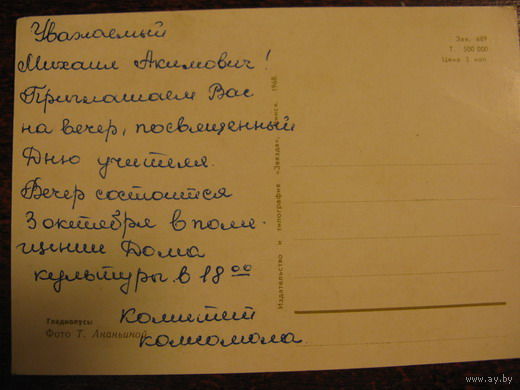 Уважаемый
Михаил Акимович!
Приглашаем Вас
на вечер, посвященный
Дню учителя.
Вечер состоится
3 октября в поме-
щении Дома
культуры в 18 00
Комитет
комсомола.
Гладиолусы
Фото Т. Ананьиной
Издательство и типография «Звязда», Минск. 1968.
Зак. 689
Т. 500 000
Цена 3 коп
www.ay.by